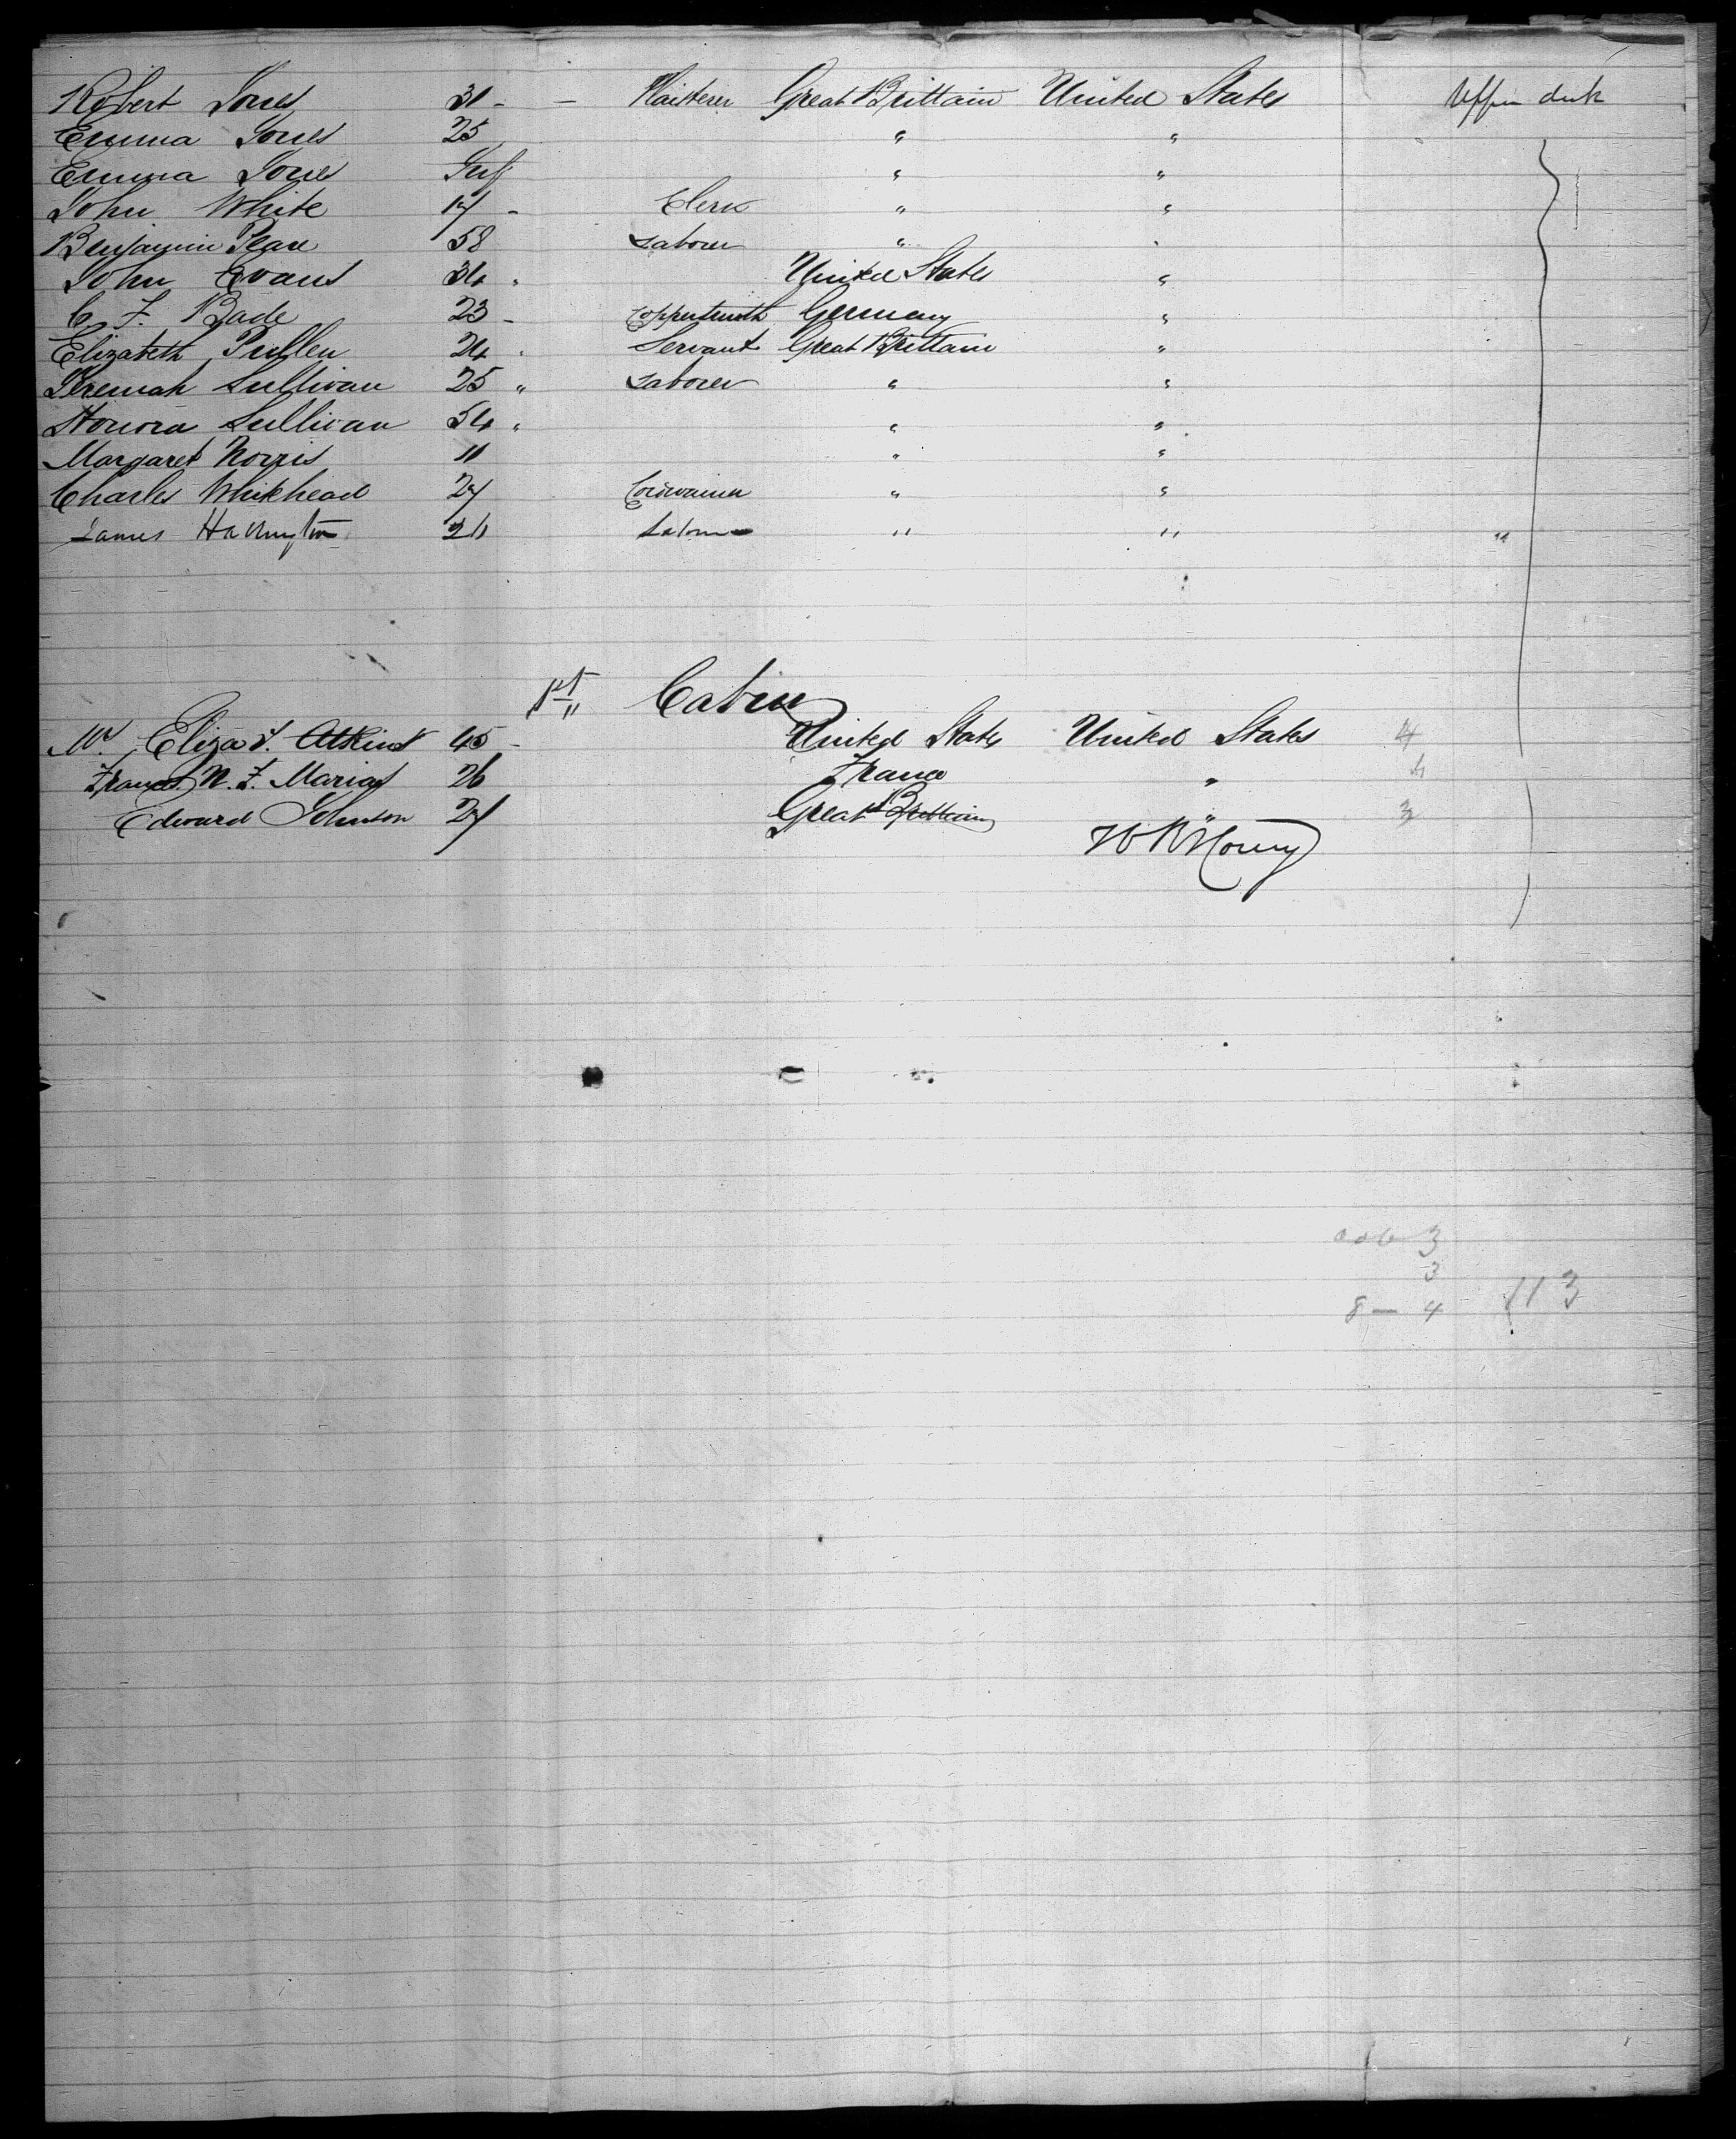 Robert Jones 31 - - Plaisterer Great Brittain United States Upper deck
Emma Jones 25 " "
Emma Jones Inf " "
John White 17 - Clerk " "
Benjamin Peare 58 Laborer " "
John Evans 34 " United States "
C. F. Bade 23 - Coppersmith Germany "
Elizabeth Pullen 24 " Servant Great Brittain "
Jeremiah Sullivan 25 " Laborer " "
Honora Sullivan 54 " " "
Margaret Norris 11 " "
Charles Whitehead 27 Cordwainer " "
James Harrington 26 Laborer " " "
1st Cabin
Mrs Eliza J. Atkins 45 - United States United States 4
Frances N. F. Marias 26 France " 4
Edward Johnson 27 Great Brittain " 3
3
3
8 - 4 113